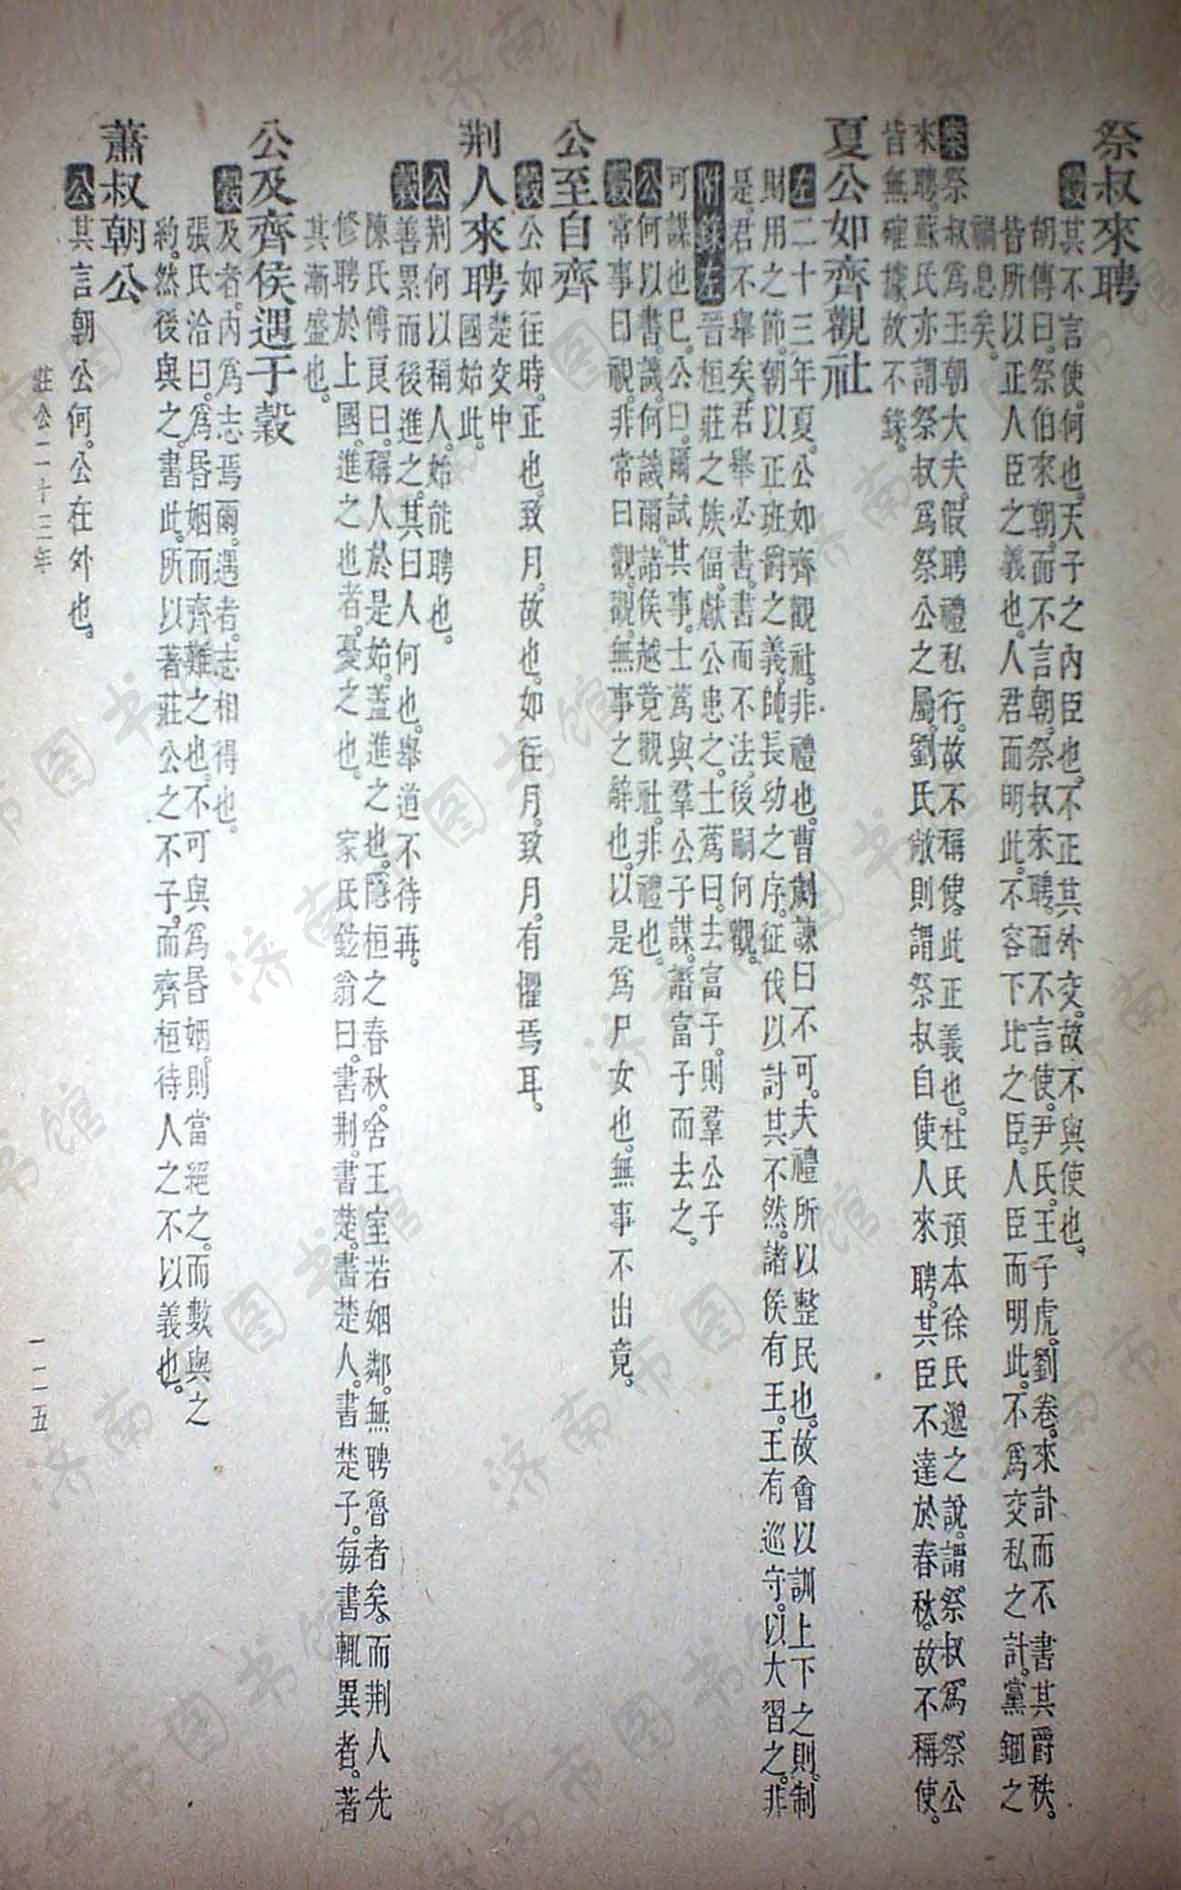 祭叔來聘
穀其不言使。何也。天子之內臣也。不正其外交。故不與使也。
胡傳曰。祭伯來朝。而不言朝。祭叔來聘。而不言使。尹氏。王子虎。劉卷。來訃而不書其爵秩。
皆所以正人臣之義也。人君而明此。不容下比之臣。人臣而明此。不爲交私之計。黨錮之
禍息矣。
案祭叔爲王朝大夫。假聘禮私行。故不稱使。此正義也。杜氏預本徐氏邈之說。謂祭叔爲祭公
來聘。蘇氏亦謂祭叔爲祭公之屬。劉氏敞則謂祭叔自使人來聘。其臣不達於春秋。故不稱使。
皆無確據。故不錄。
夏公如齊觀社
左二十三年夏。公如齊觀社。非禮也。曹劌諫曰。不可。夫禮所以整民也。故會以訓上下之則。制
財用之節。朝以正班爵之義。帥長幼之序。征伐以討其不然。諸侯有王。王有巡守。以大習之。非
是。君不舉矣。君舉必書。書而不法。後嗣何觀。
附錄左晉桓莊之族偪。獻公患之。士蔿曰。去富子。則羣公子
可謀也已。公曰。爾試其事。士蔿與羣公子謀。譖富子而去之。
公何以書。譏。何譏爾。諸侯越竟觀社。非禮也。
穀常事曰視。非常曰觀。觀。無事之辭也。以是爲尸女也。無事不出竟。
公至自齊
穀公如往時。正也。致月。故也。如往月。致月。有懼焉耳。
荆人來聘楚交中國始此。
公荆何以稱人。始能聘也。
穀善累而後進之。其曰人何也。舉道不待再。
陳氏傅良曰。稱人於是始。蓋進之也。隱桓之春秋。舍王室若姻鄰。無聘魯者矣。而荆人先
修聘於上國。進之也者。憂之也。　家氏鉉翁曰。書荆。書楚。書楚人。書楚子。每書輒異者。著
其漸盛也。
公及齊侯遇于穀
穀及者。內爲志焉爾。遇者。志相得也。
張氏洽曰。爲昏姻而齊難之也。不可與爲昏姻。則當絕之。而數與之
約。然後與之。書此。所以著莊公之不子。而齊桓待人之不以義也。
蕭叔朝公
公其言朝公何。公在外也。
莊公二十三年
一二五